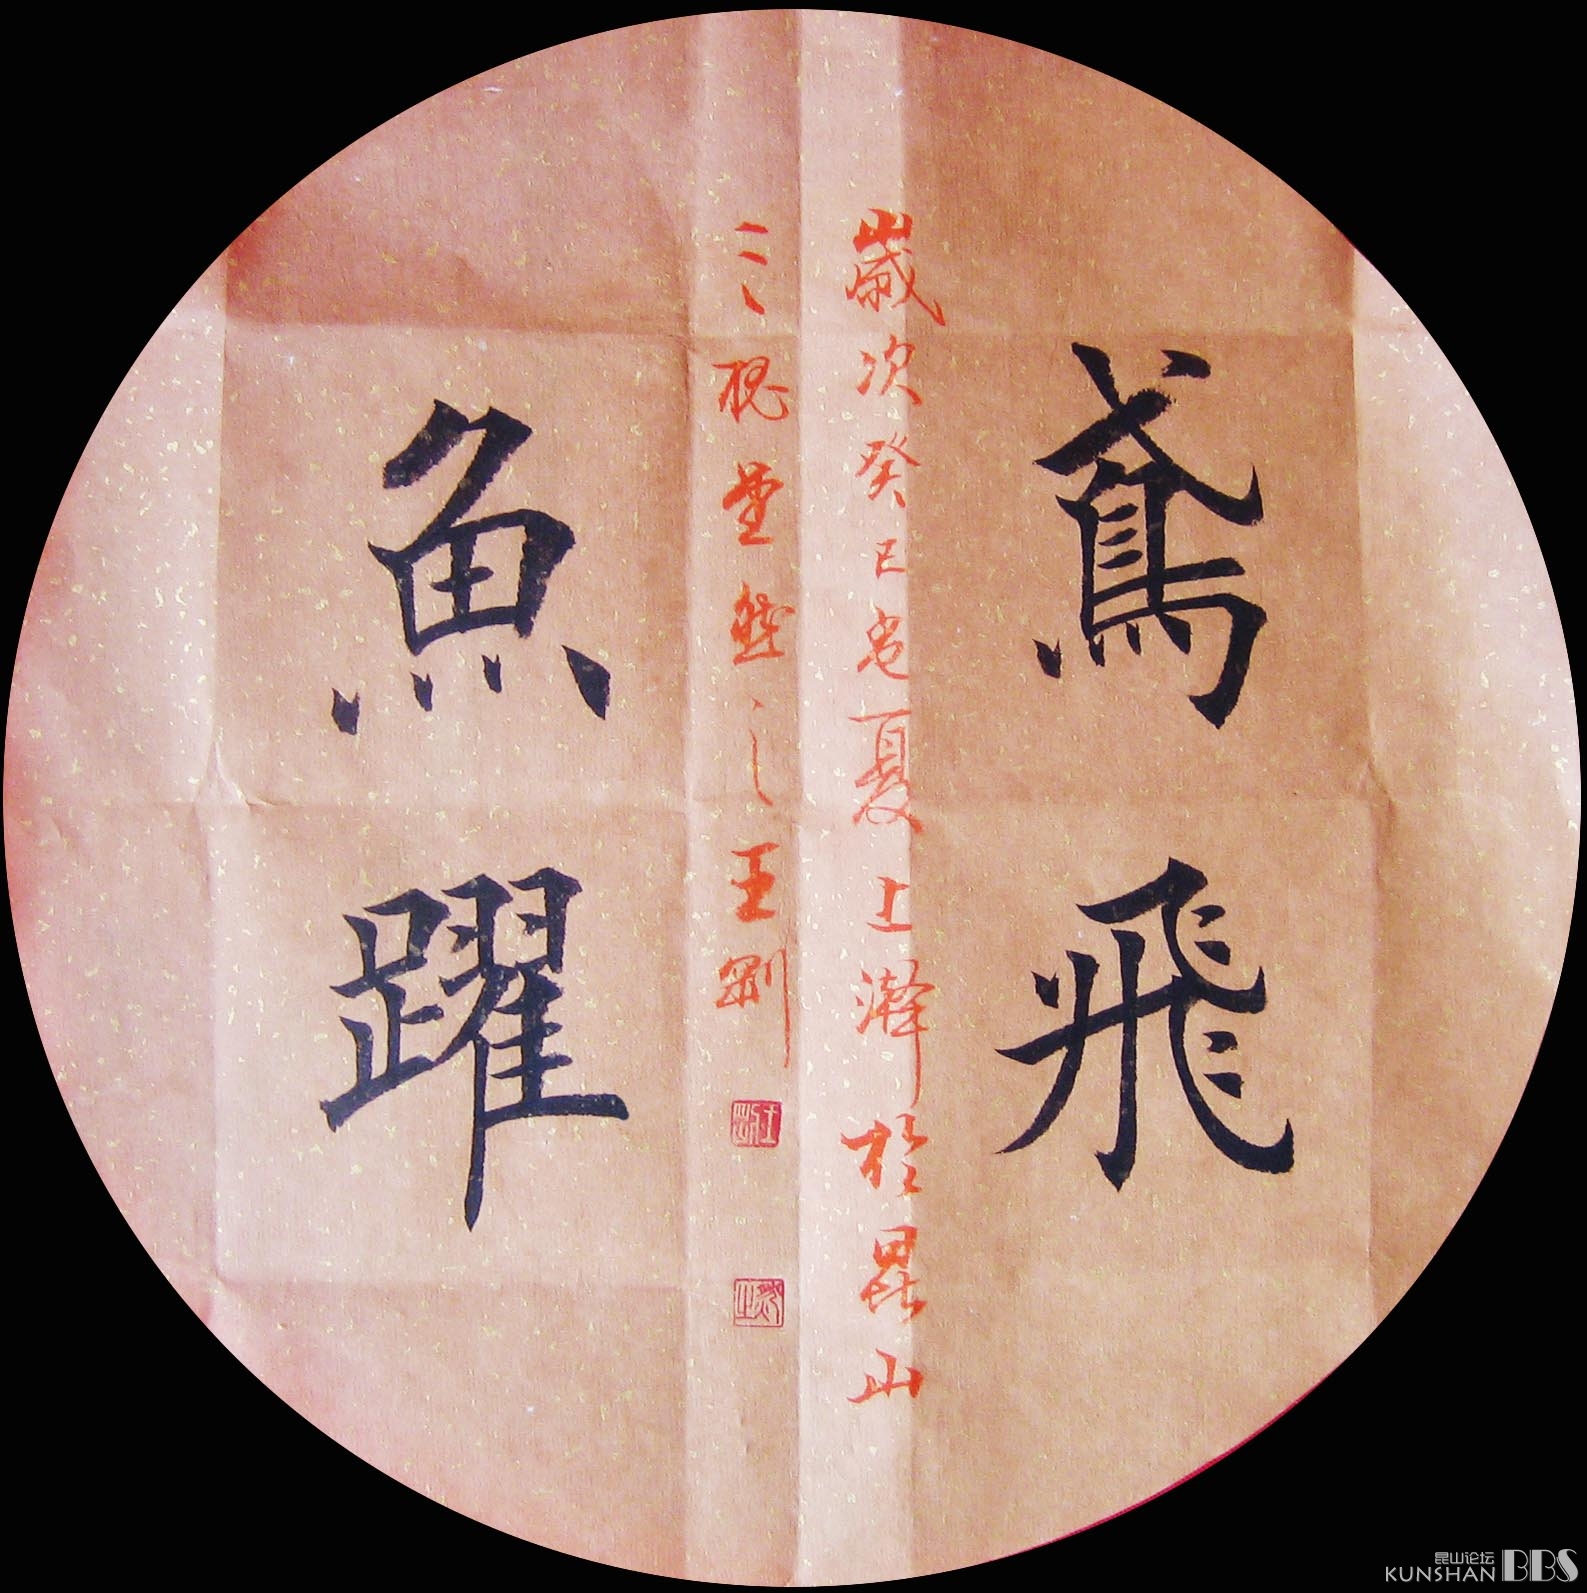 鳶飛
歲次癸巳孟夏上澣於昆山
三槐堂然之王剛
魚躍
昆山论坛
KUNSHAN BBS